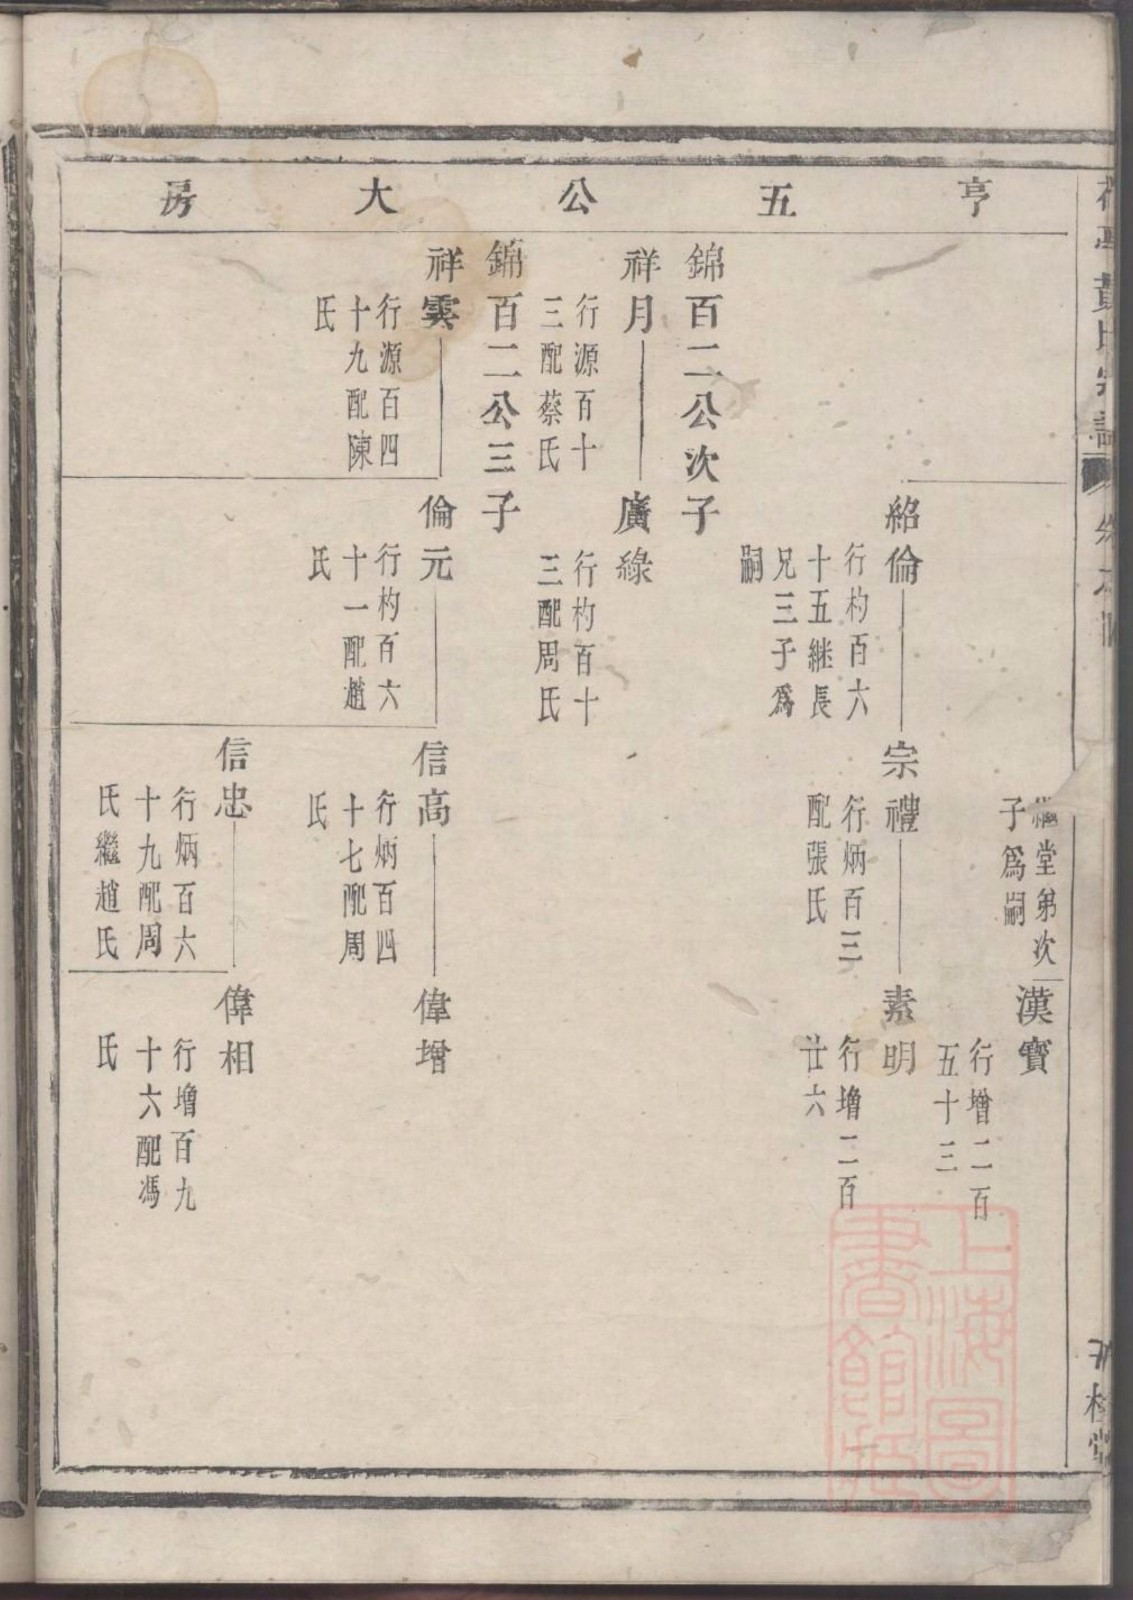 亨五公大房
繼堂弟次
子爲嗣
漢寶
行增二百
五十三
紹倫
行杓百六
十五継長
兄三子爲
嗣
宗禮
行炳百三
配張氏
素明
行增二百
廿六
錦百二公次子
祥月
行源百十
三配蔡氏
廣綠
行杓百十
三配周氏
錦百二公三子
祥雲
行源百四
十九配陳
氏
倫元
行杓百六
十一配趙
氏
信高
行炳百四
十七配周
氏
偉增
信忠
行炳百六
十九配周
氏繼趙氏
偉相
行增百九
十六配馮
氏
上海圖
書館藏